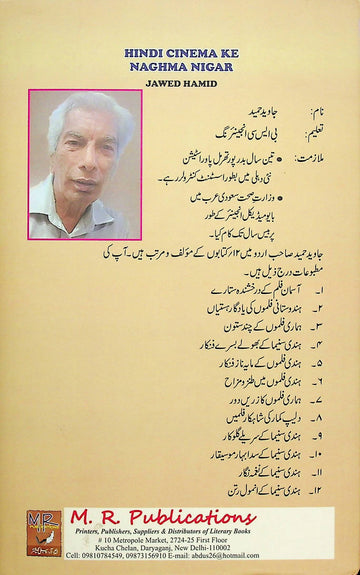 HINDI CINEMA KE
NAGHMA NIGAR
JAWED HAMID
نام: جاوید حمید
تعلیم: بی ایس سی انجینئرنگ
ملازمت: • تین سال بدر پور تھرمل پاور اسٹیشن
نئی دہلی میں بطور اسسٹنٹ کنٹرولر رہے۔
• وزارتِ صحت سعودی عرب میں
بایومیڈیکل انجینئر کے طور
پر بیس سال تک کام کیا۔
جاوید حمید صاحب اردو میں ۱۲ کتابوں کے مؤلف و مرتب ہیں۔ آپ کی
مطبوعات درج ذیل ہیں۔
۱۔ آسمان فلم کے درخشندہ ستارے
۲۔ ہندوستانی فلموں کی یادگار ہستیاں
۳۔ ہماری فلموں کے چند ستون
۴۔ ہندی سنیما کے بھولے بسرے فنکار
۵۔ ہندی فلموں کے مایہ ناز فنکار
۶۔ ہندی فلموں میں طنز و مزاح
۷۔ ہماری فلموں کا زریں دور
۸۔ دلیپ کمار کی شاہکار فلمیں
۹۔ ہندی سنیما کے سریلے گلوکار
۱۰۔ ہندی سنیما کے سدا بہار موسیقار
۱۱۔ ہندی سنیما کے نغمہ نگار
۱۲۔ ہندی سنیما کے انمول رتن
M. R. Publications
Printers, Publishers, Suppliers & Distributors of Literary Books
# 10 Metropole Market, 2724-25 First Floor
Kucha Chelan, Daryaganj, New Delhi-110002
Cell: 09810784549, 09873156910 E-mail: abdus26@hotmail.com